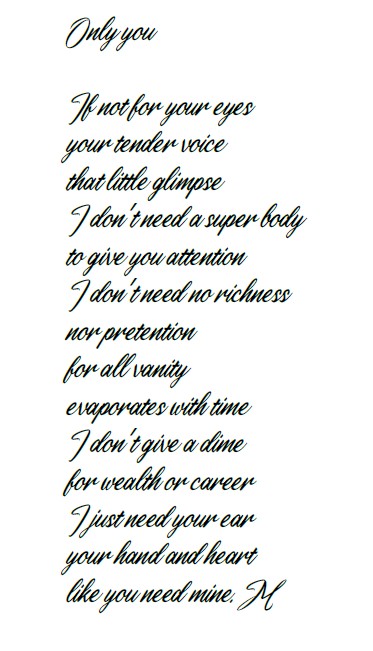 Only you
If not for your eyes
your tender voice
that little glimpse
I don't need a super body
to give you attention
I don't need no richness
nor pretention
for all vanity
evaporates with time
I don't give a dime
for wealth or career
I just need your ear
your hand and heart
like you need mine. M